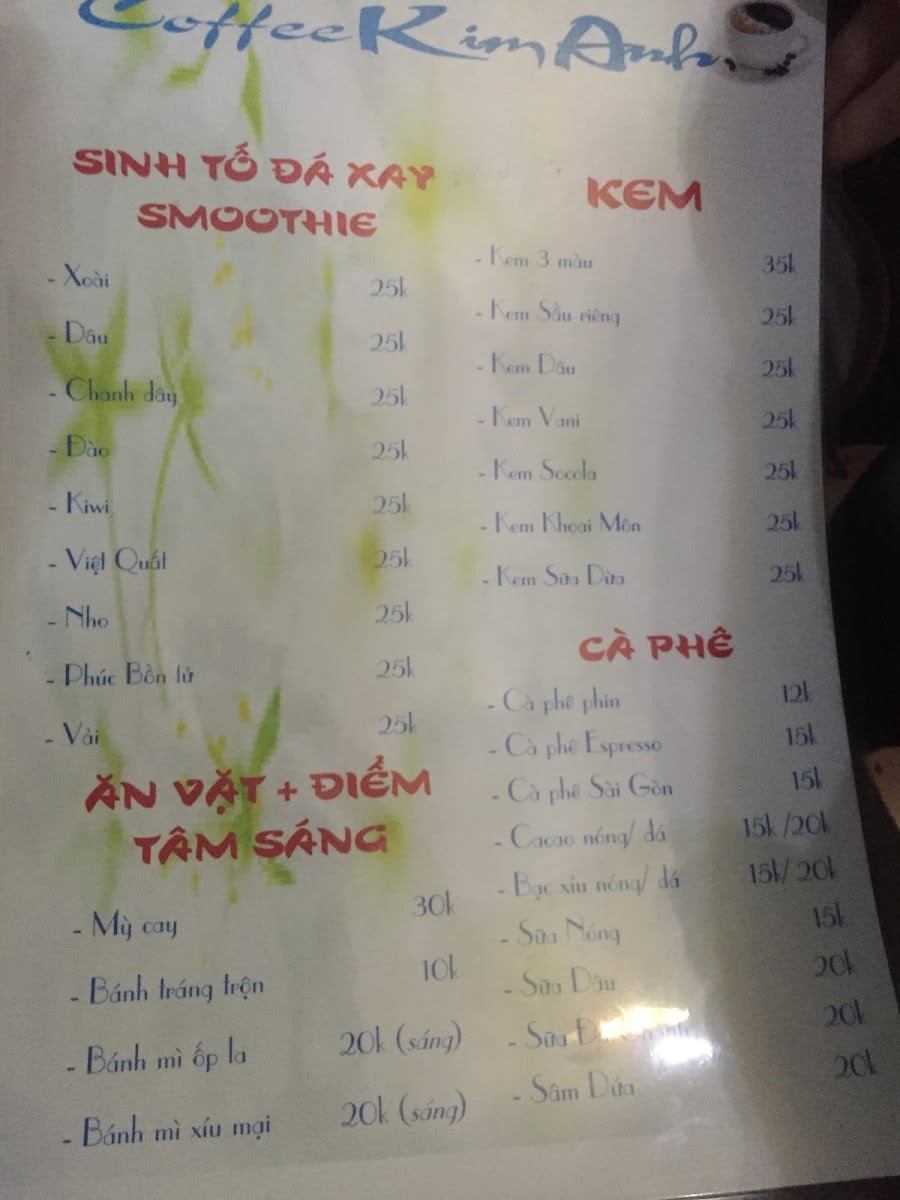 Coffee Kim Anh
SINH TỐ ĐÁ XAY
SMOOTHIE
- Xoài 25k
- Dâu 25k
- Chanh dây 25k
- Đào 25k
- Kiwi 25k
- Việt Quất 25k
- Nho 25k
- Phúc Bồn tử 25k
- Vải 25k
ĂN VẶT + ĐIỂM
TÂM SÁNG
- Mỳ cay 30k
- Bánh tráng trộn 10k
- Bánh mì ốp la 20k (sáng)
- Bánh mì xíu mại 20k (sáng)
KEM
- Kem 3 màu 35k
- Kem Sầu riêng 25k
- Kem Dâu 25k
- Kem Vani 25k
- Kem Socola 25k
- Kem Khoai Môn 25k
- Kem Sữa Dừa 25k
CÀ PHÊ
- Cà phê phin 12k
- Cà phê Espresso 15k
- Cà phê Sài Gòn 15k
- Cacao nóng/ đá 15k /20k
- Bạc xỉu nóng/ đá 15k/ 20k
- Sữa Nóng 15k
- Sữa Dâu 20k
- Sữa 20k
- Sâm Dứa 20k